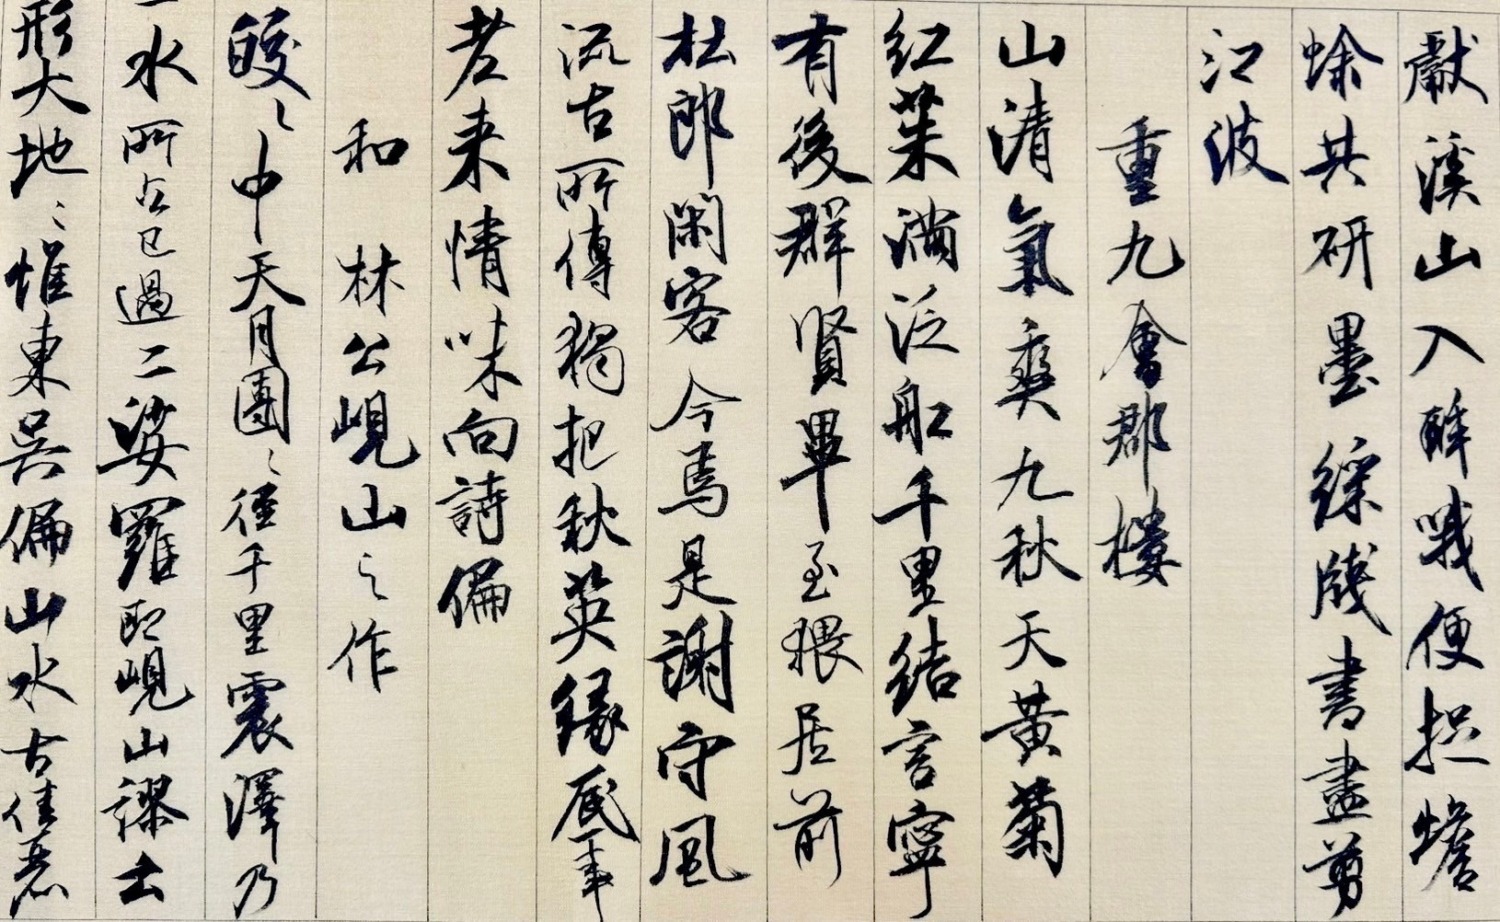 獻溪山入醉哦便捉蟾
蜍共研墨綵牋書盡剪
江波
重九會郡樓
山清氣爽九秋天黃菊
紅茱滿泛船千里結言寧
有後群賢畢至猥居前
杜郎閑客今焉是謝守風
流古所傳獨把秋英緣底事
老来情味向詩偏
和林公峴山之作
皎〻中天月團〻徑千里震澤乃
一水所占已過二娑羅即峴山謬云
形大地〻惟東吳偏山水古佳麗